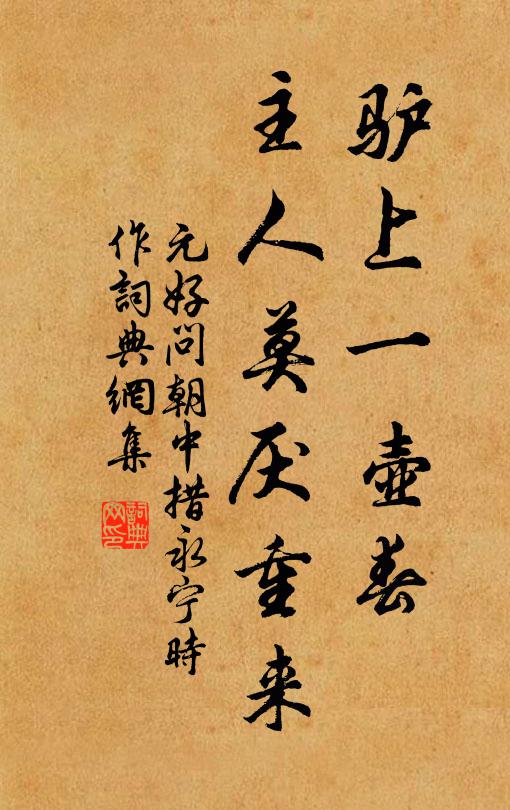 驴上一壶春
主人莫厌重来
元好问朝中措永宁時
作詞典網集
詞典网印